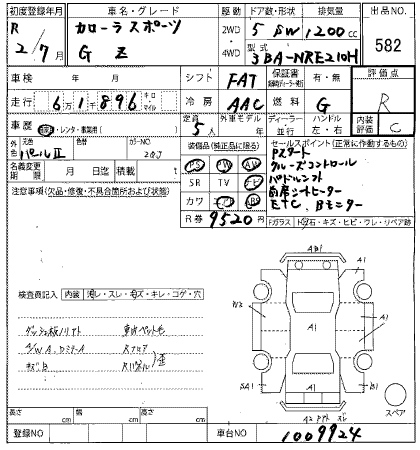 初度登録年月
R 2/7月
車名・グレード
カローラスポーツ
G Z
駆動
2WD
4WD
ドア数・形状
5 SW
排気量
1200 cc
型式
3BA-NRE210H
出品NO.
582
車検 年 月
シフト FAT
保証書 有・無
評価点
R
走行 6万1千896 キロ マイル
冷房 AAC
燃料 G
車歴 ・レンタ・事業用( )
定員 5人
外車モデル 年
ディーラー 並行
ハンドル 左・右
内装評価 C
元色 パールⅡ
色替
カラーNO 20J
名義変更期限 月 日迄
月数 ヶ月
装備品(純正品に限る)
PS PW AW
SR TV ナビ
カワ エアB ABS
R券 9520円
セールスポイント(正常に作動するもの)
Pスタート
クルーズコントロール
パドルシフト
前席シートヒーター
ETC、Bモニター
注意事項(欠品・修復・不具合箇所および状態)
Fガラス トビ石・キズ・ヒビ・ワレ・リペア跡
検査員記入 内装 汚レ・スレ・キズ・キレ・コゲ・穴
ダッシュ板ノリアト
車内ペット毛
A/W A、Dミラー A
Rフロア
キズ、凹
Rパネル 歪
AB1
A1
W2
A1
A1
A1
A1
SA1
B1
スペア
長さ cm
幅 cm
高さ cm
登録NO
車台NO 1009924